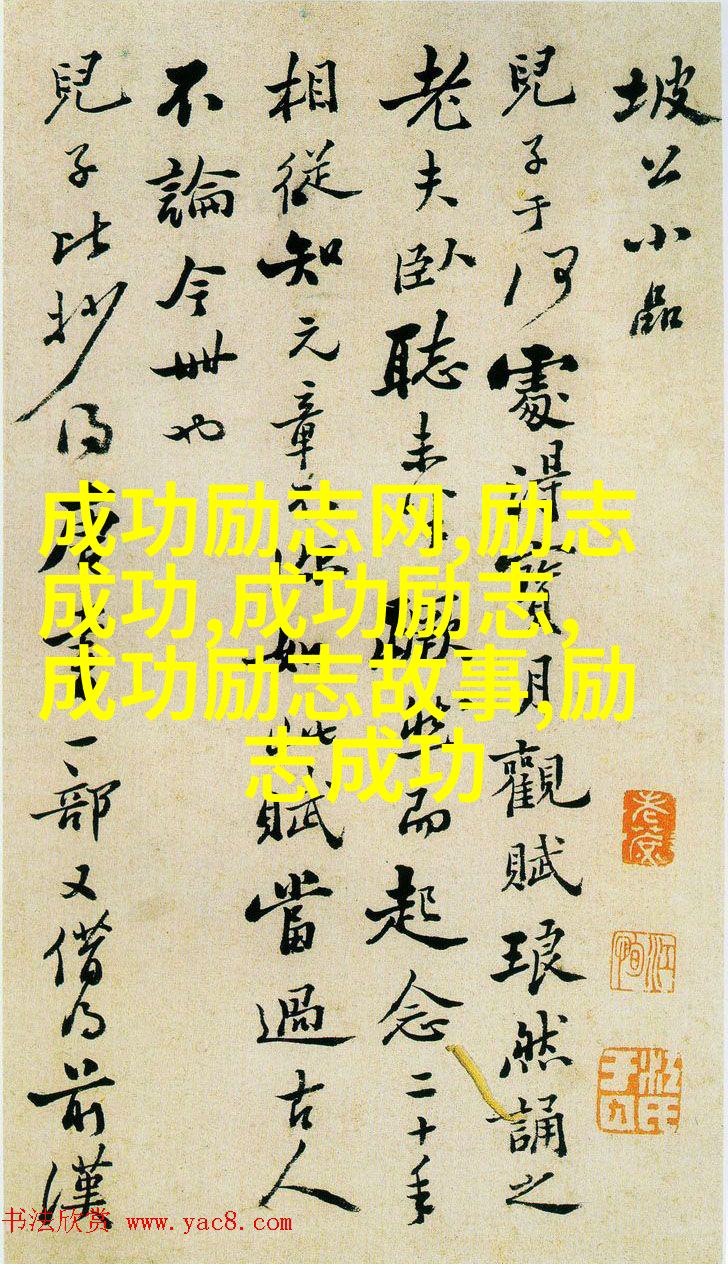 坡公小品
兒子于何處得寶月觀賦琅然誦之
老夫臥聽未躍然而起念二十年
相從知元章如此賦當過古人
不論今世也
兒子比抄得唐書一部又借得前漢
成功励志网,励志
成功,成功励志,
成功励志故事,励
志成功
书法欣赏 www.yac8.com